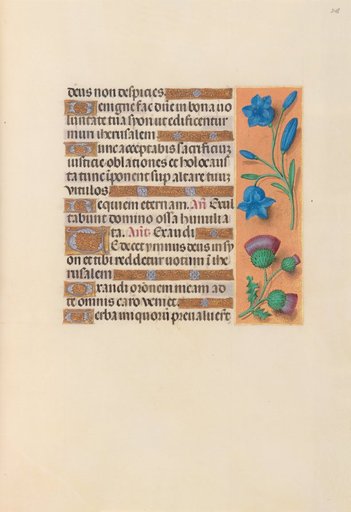 deus non despicies.
Benigne fac dñe in bona uo
luntate tua syon ut edificentur
muri iherusalem
Tunc acceptabis sacrificiũ
iusticie oblationes et holocaus
ta tunc īponent sup altare tuũ
vitulos
Requiem eternam. Añ. Exul
tabunt domino ossa humilia
ta. Añt. Exaudi
Te decet ymnus deus in sy
on et tibi reddetur uotum ī ihe
rusalem
Exaudi orōnem meam ad
te omnis caro veniet.
Verba iniquorũ preualuerũt